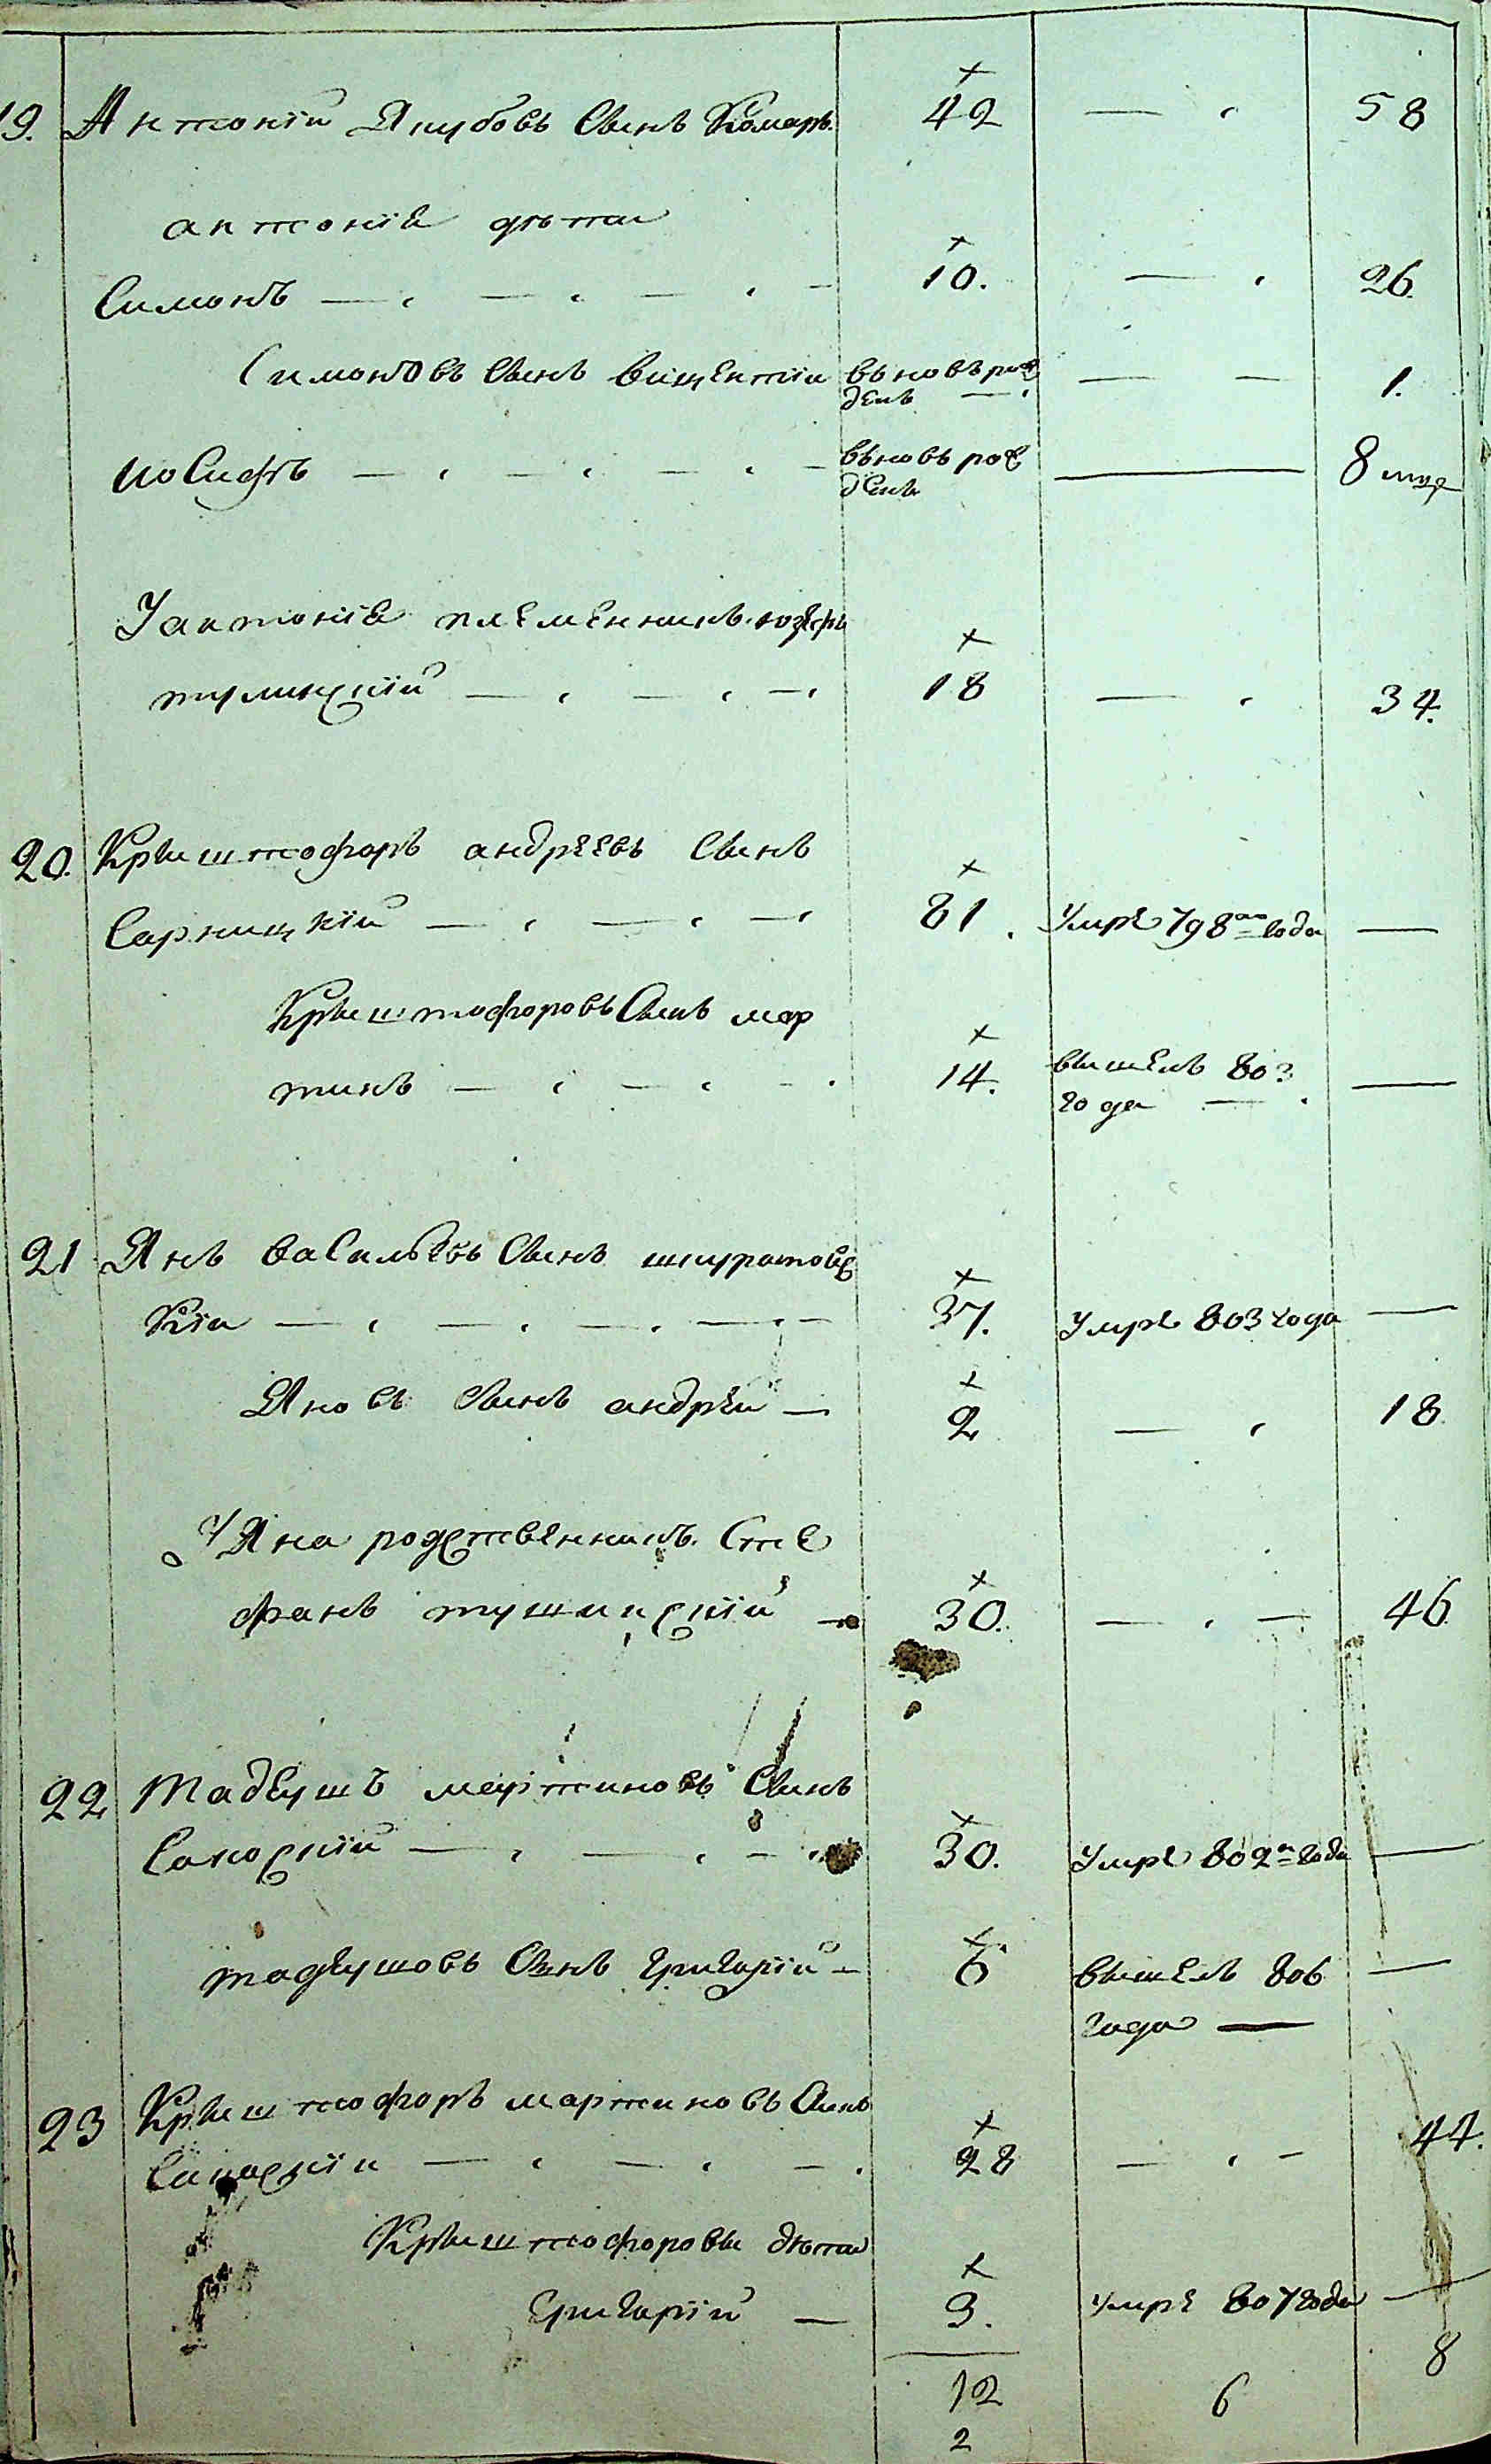 19. Антоній Якубовъ Сынъ Комаръ. 42 — 58
антонія дѣти
Симонъ — 10. — 26.
Симоновъ Сынъ вицентій вьновь рож — — 1.
денъ —
иосифъ — вьновь рож — 8 мце
денъ
У антонія племенникъ юзефъ
тулинскій — 18 — 34.
20. Крыштофоръ андреевъ Сынъ
Сарницкій — 81. Умре 798го года —
Крыштофоровъ Сынъ мар
тинъ — 14. вышелъ 803 —
года —
21 Янъ васильевъ Сынъ шкуратовс
кій — 37. умре 803 года —
Яновъ Сынъ андрей — 2 — 18.
У Яна родственникъ Сте
фанъ тушинскій — 30. — 46.
22 Тадеушъ мартиновъ Сынъ
Саноцкій — 30. умре 802го года —
тадеушовъ Сынъ григорій — 6 вышелъ 806 —
года —
23 Крыштофоръ мартиновъ Сынъ
28 — 44.
Крыштофоровы дѣти
григорій — 3. умре 807 года —
12 6 8
2